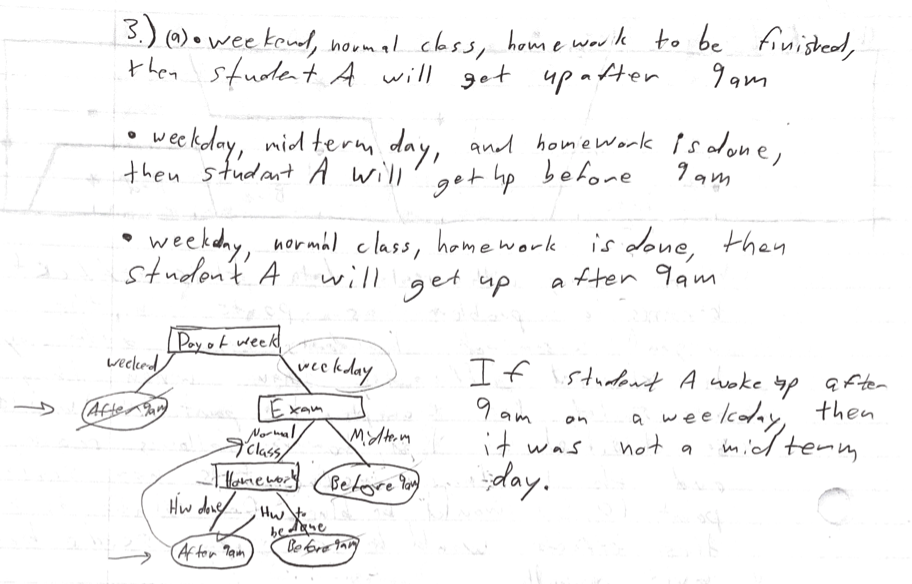 3.) (a) • weekend, normal class, homework to be finished,
then student A will get up after 9am
• weekday, midterm day, and homework is done,
then student A will get up before 9am
• weekday, normal class, homework is done, then
student A will get up after 9am
Day of week
weeked
weekday
After 9am
Exam
Normal
Class
Midterm
Homework
Before 9am
Hw done
Hw to
be done
After 9am
Before 9am
If student A woke up after
9am on a weekday, then
it was not a midterm
day.